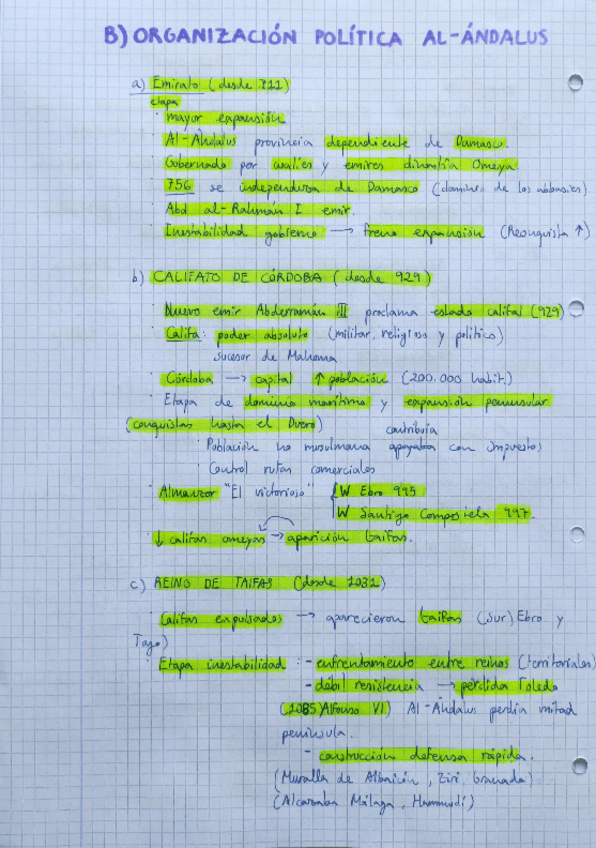 B) ORGANIZACIÓN POLÍTICA AL-ÁNDALUS
a) Emirato (desde 711)
etapa
· mayor expansión
· Al-Ándalus provincia dependiente de Damasco.
· Gobernado por walíes y emires dinastía Omeya.
· 756 se independiza de Damasco (dominio de los abbasíes)
· Abd al-Rahmán I emir.
· Inestabilidad gobierno → freno expansión (Reconquista ↑)
b) CALIFATO DE CÓRDOBA (desde 929)
· Nuevo emir Abderramán III proclama estado califal (929)
· Califa: poder absoluto (militar, religioso y político)
sucesor de Mahoma
· Córdoba → capital ↑ población (200.000 habit.)
· Etapa de dominio marítimo y expansión peninsular
(conquistas hasta el Duero)
contribuía
· Población no musulmana apoyaba con impuestos
· Control rutas comerciales
· Almanzor "El victorioso" { W Ebro 995
W Santiago Compostela 997.
· ↓ califas omeyas → aparición taifas.
c) REINO DE TAIFAS (desde 1031)
· Califas expulsados → aparecieron taifas (Sur) Ebro y
Tajo)
· Etapa inestabilidad : - enfrentamiento entre reinos (territoriales)
- débil resistencia → pérdida Toledo
(1085 Alfonso VI) Al-Ándalus perdía mitad
península.
- construcción defensa rápida.
(Muralla de Albaicín, Ziri, Granada)
(Alcazaba Málaga, Hammudí)